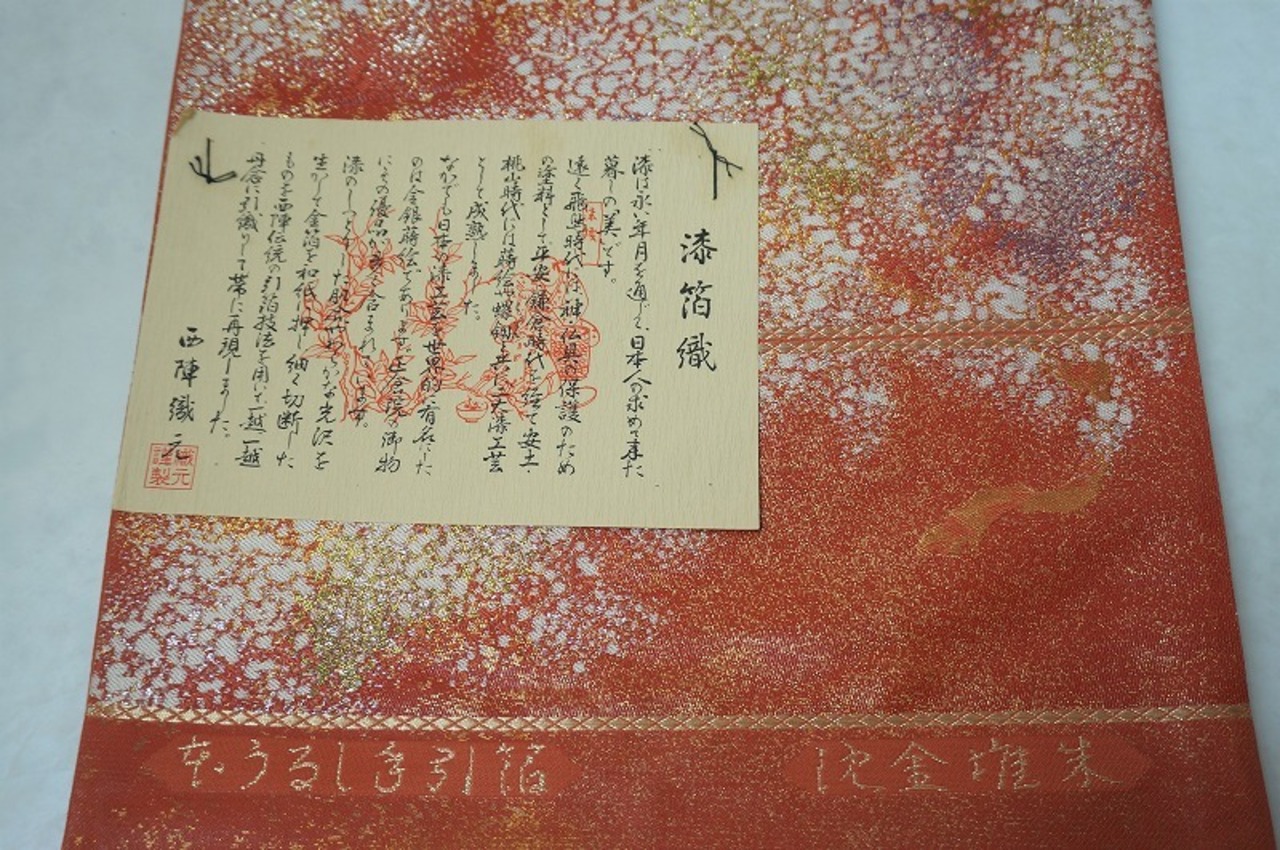 漆箔織
漆は永い年月を通じて、日本人の求めて来た
暮しの「美」です。
遠く飛鳥時代には神・仏具の保護のため
の塗料として平安・鎌倉時代を経て安土・
桃山時代には蒔絵・螺鈿と共に大漆工芸
として成熟しました。
なかでも日本の漆工芸を世界的に有名にした
のは金銀蒔絵であります。正倉院の御物
にその優品が数々含まれています。
漆のしっとりした肌合いやわらかな光沢を
生かして金箔を和紙に押し細く切断した
ものを西陣伝統の引箔技法を用いて一越一越
丹念に引織りして帯に再現しました。
西陣織元
織元
謹製
本うるし手引箔
沈金堆朱